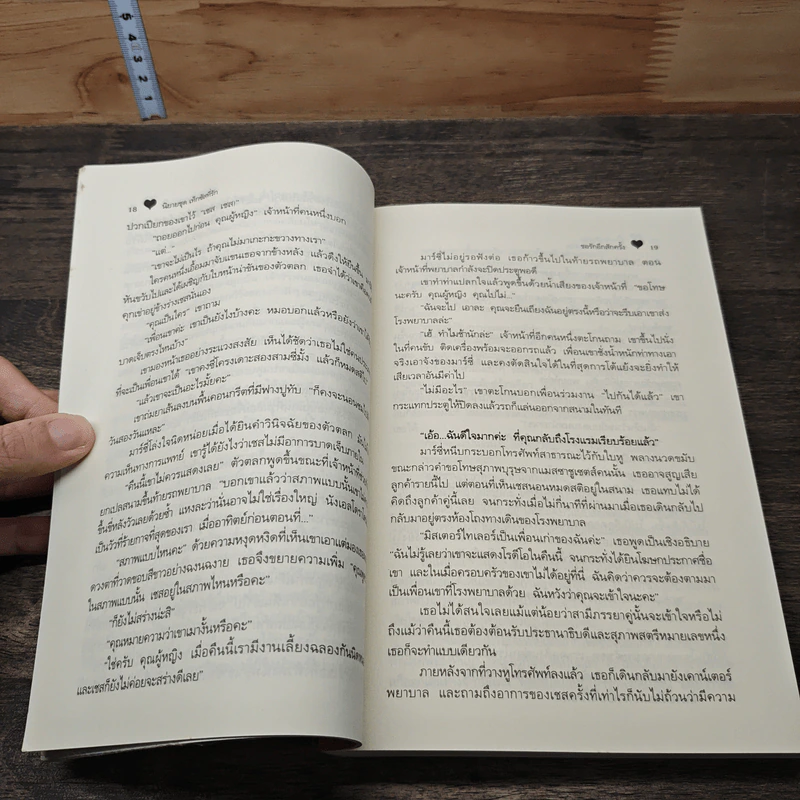 5 4 3 2 1
18 ♥ นิยายชุด เท็กซัสที่รัก
ปวกเปียกของเขาไว้ "เชส เชส!"
"ถอยออกไปก่อน คุณผู้หญิง" เจ้าหน้าที่คนหนึ่งบอก
"แต่..."
"เขาจะไม่เป็นไร ถ้าคุณไม่มาเกะกะขวางทางเรา"
ใครคนหนึ่งเอื้อมมาจับแขนเธอจากข้างหลัง แล้วดึงให้ยืนขึ้น
หันขวับไปและได้เผชิญกับใบหน้าน่าขันของตัวตลก เธอจำได้ว่าเขา
คุกเข่าอยู่ข้างร่างเชสนั่นเอง
"คุณเป็นใคร" เขาถาม
"เพื่อนเขาค่ะ เขาเป็นยังไงบ้างคะ หมอบอกแล้วหรือยังว่าเขา
บาดเจ็บตรงไหนบ้าง"
เขามองหน้าเธออย่างระแวงสงสัย เห็นได้ชัดว่าเธอไม่ใช่คน
ที่จะเป็นเพื่อนเขาได้ "เขาคงซี่โครงเดาะสองสามซี่มั้ง แล้วก็หมดสติ
"แล้วเขาจะเป็นอะไรมั้ยคะ"
เขาถ่มยาเส้นลงบนพื้นคอนกรีตที่มีฟางปูทับ "ก็คงจะนอนซม
วันสองวันแหละ"
มาร์ซี่โล่งใจนิดหน่อยเมื่อได้ยินคำวินิจฉัยของตัวตลก
ความเห็นทางการแพทย์ เขารู้ได้ยังไงว่าเชสไม่มีอาการบาดเจ็บภายใน
"คืนนี้เขาไม่ควรแสดงเลย" ตัวตลกพูดขึ้นขณะที่เจ้าหน้าที่ช่วย
ยกเปลสนามขึ้นท้ายรถพยาบาล "บอกเขาแล้วว่าสภาพแบบนั้นเขาไม่
ขึ้นขี่หลังวัวเลยด้วยซ้ำ แหงละว่านั่นอาจไม่ใช่เรื่องใหญ่ นังเอลโดราโด
เป็นวัวที่ร้ายกาจที่สุดของเรา เมื่ออาทิตย์ก่อนตอนที่..."
"สภาพแบบไหนคะ" ด้วยความหงุดหงิดที่เห็นเขาเอาแต่มอง
ดวงตาที่วาดขอบสีขาวอย่างฉงนฉงาย เธอจึงขยายความเพิ่ม "คุณพูด
ในสภาพแบบนั้น เชสอยู่ในสภาพไหนหรือคะ"
"ก็ยังไม่สร่างน่ะสิ"
"คุณหมายความว่าเขาเมางั้นหรือคะ"
"ใช่ครับ คุณผู้หญิง เมื่อคืนนี้เรามีงานเลี้ยงฉลองกันนิดหน่อย
และเชสก็ยังไม่ค่อยจะสร่างดีเลย"
ขอรักอีกสักครั้ง ♥ 19
มาร์ซี่ไม่อยู่รอฟังต่อ เธอก้าวขึ้นไปในท้ายรถพยาบาล ตอน
เจ้าหน้าที่พยาบาลกำลังจะปิดประตูพอดี
เขาทำท่าแปลกใจแล้วพูดขึ้นด้วยน้ำเสียงของเจ้าหน้าที่ "ขอโทษ
นะครับ คุณผู้หญิง คุณไปไม่..."
"ฉันจะไป เอาละ คุณจะยืนเถียงฉันอยู่ตรงนี้หรือว่าจะรีบเอาเขาส่ง
โรงพยาบาลล่ะ"
"เฮ้ ทำไมช้านักล่ะ" เจ้าหน้าที่อีกคนหนึ่งตะโกนถาม เขาขึ้นไปนั่ง
ในที่คนขับ ติดเครื่องพร้อมจะออกรถแล้ว เพื่อนเขาชั่งน้ำหนักท่าทางเอา
จริงเอาจังของมาร์ซี่ และคงตัดสินใจได้ในที่สุดการโต้แย้งจะยิ่งทำให้
เสียเวลาอันมีค่าไป
"ไม่มีอะไร" เขาตะโกนบอกเพื่อนร่วมงาน "ไปกันได้แล้ว" เขา
กระแทกประตูให้ปิดลงแล้วรถก็แล่นออกจากสนามในทันที
"เอ้อ...ฉันดีใจมากค่ะ ที่คุณกลับถึงโรงแรมเรียบร้อยแล้ว"
มาร์ซี่หนีบกระบอกโทรศัพท์สาธารณะไว้กับใบหู พลางนวดขมับ
ขณะกล่าวคำขอโทษสุภาพบุรุษจากแมสซาชูเซตส์คนนั้น เธออาจสูญเสีย
ลูกค้ารายนี้ไป แต่ตอนที่เห็นเชสนอนหมดสติอยู่ในสนาม เธอแทบไม่ได้
คิดถึงลูกค้าคู่นี้เลย จนกระทั่งเมื่อไม่กี่นาทีที่ผ่านมาเมื่อเธอเดินกลับไป
กลับมาอยู่ตรงห้องโถงทางเดินของโรงพยาบาล
"มิสเตอร์ไทเลอร์เป็นเพื่อนเก่าของฉันค่ะ" เธอพูดเป็นเชิงอธิบาย
"ฉันไม่รู้เลยว่าเขาจะแสดงโรดีโอในคืนนี้ จนกระทั่งได้ยินโฆษกประกาศชื่อ
เขา และในเมื่อครอบครัวของเขาไม่ได้อยู่ที่นี่ ฉันคิดว่าควรจะต้องตามมา
เป็นเพื่อนเขาที่โรงพยาบาลด้วย ฉันหวังว่าคุณจะเข้าใจนะคะ"
เธอไม่ได้สนใจเลยแม้แต่น้อยว่าสามีภรรยาคู่นั้นจะเข้าใจหรือไม่
ถึงแม้ว่าคืนนี้เธอต้องต้อนรับประธานาธิบดีและสุภาพสตรีหมายเลขหนึ่ง
เธอก็จะทำแบบเดียวกัน
ภายหลังจากที่วางหูโทรศัพท์ลงแล้ว เธอก็เดินกลับมายังเคาน์เตอร์
พยาบาล และถามถึงอาการของเชสครั้งที่เท่าไรก็นับไม่ถ้วนว่ามีความ